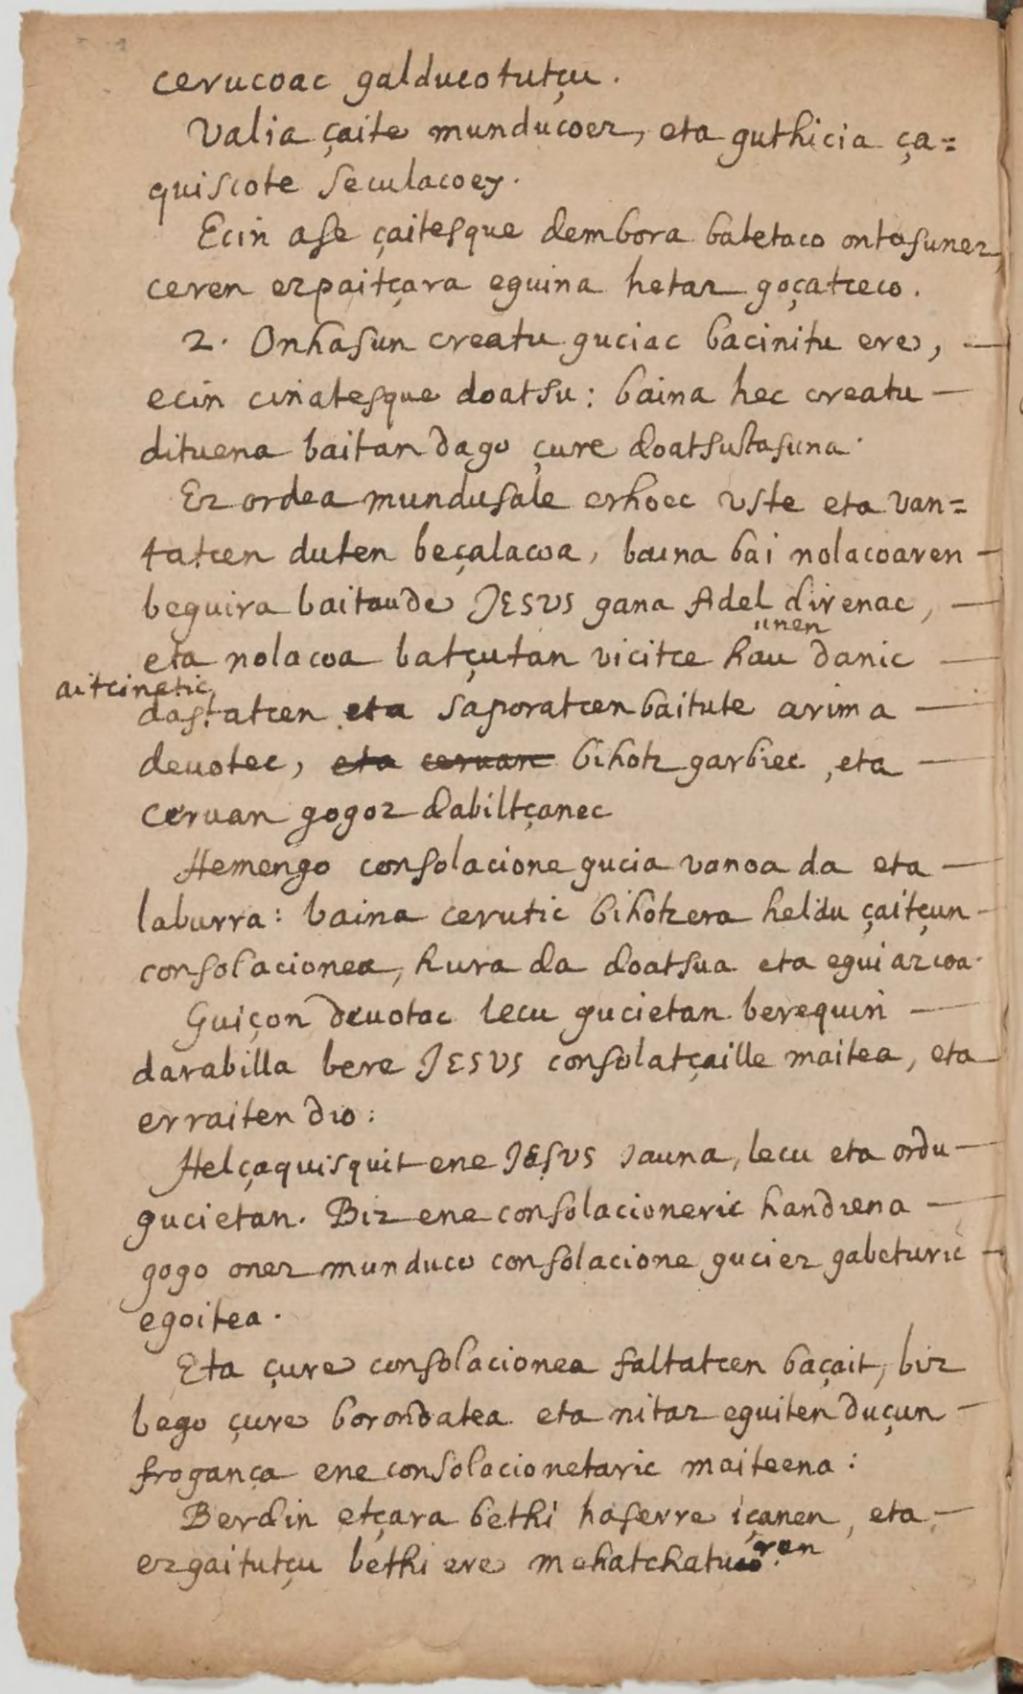 cerucoac galducotutçu.
Valia çaite munducoez, eta guthicia ça=
quiscote seculacoey.
Eciñ ase çaitesque dembora batetaco ontasunez,
ceren ezpaitçara eguina hetaz goçatceco.
2. Onhasun creatu guciac bacinitu ere, —
ecin ciñatesque doatsu: baina hec creatu —
dituena baitan dago çure doatsutasuna.
Ez ordea mundusale erhoec uste eta van=
tatcen duten beçalacoa, baina bai nolacoaren —
beguira baitaude JESUS gana Adel direnac, —
unen
eta nolacoa batçutan vicitce hau danic —
aitcinetic
dastatcen eta saporatcen baitute arima —
deuotec, eta ceruan bihotz garbiec, eta —
ceruan gogoz dabiltçanec
Hemengo consolacione gucia vanoa da eta —
laburra: baina cerutic bihotzera heldu çaitçun —
consolacionea, hura da doatsua eta eguiazcoa.
Guiçon deuotac lecu gucietan berequiñ —
darabilla bere JESUS consolatçaille maitea, eta
erraiten dio:
Helçaquisquit ene JESUS Jauna, lecu eta ordu —
gucietan. Biz ene consolacioneric handiena —
gogo onez munduco consolacione guciez gabeturic —
egoitea.
Eta çure consolacionea faltatcen baçait, biz
bego çure borondatea eta nitaz eguiten duçun —
froganca ene consolacionetaric maiteena:
Berdin etçara bethi haserre içanen, eta —
ezgaitutçu bethi ere mehatchatuco ren